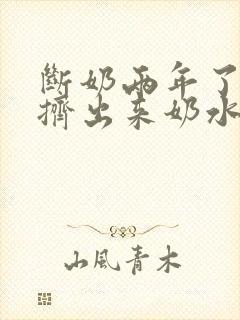 断奶两年了
擠出来奶水
山風青木